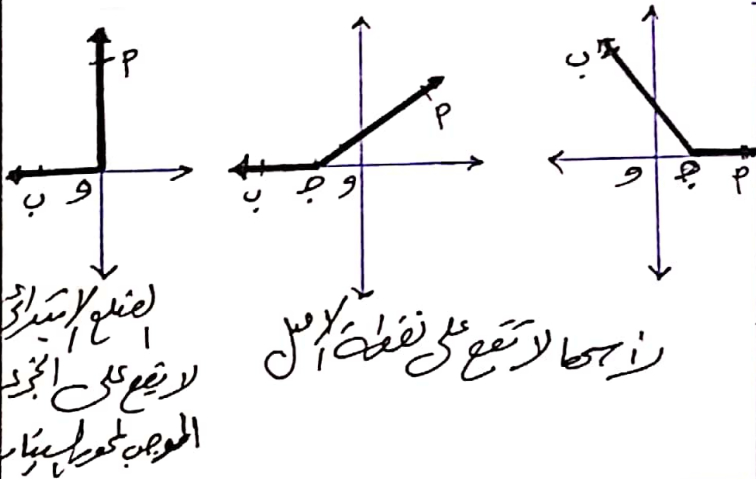 ب
م
جـ
و
م
و
جـ
ب
م
و
ب
رأسها لا تقع على نقطة الأصل
الضلع الابتدائي
لا يقع على الجزء
الموجب لمحور السينات